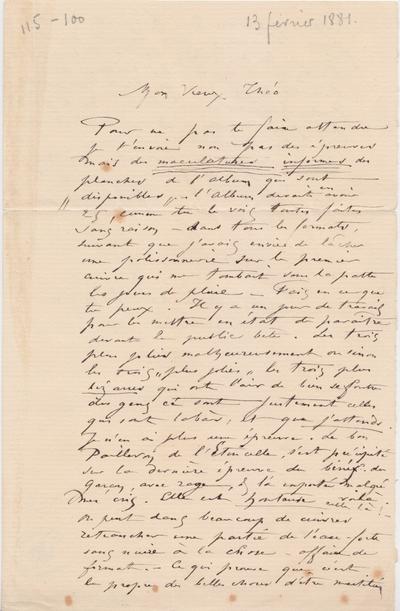 115 - 100
13 février 1881.
Mon vieux Théo
Pour ne pas te faire attendre
je t'envoie non pas des épreuves
mais des maculatures informes des
planches de l'album qui sont
"disponibles", l'album devait en avoir
25, comme tu le vois toutes faites
sans raison - dans tous les formats,
suivant que j'avais envie de lâcher
une polissonnerie sur le premier
cuivre qui me tombait sous la patte
les jours de pluie - Fais en ce que
tu peux. Il y a un jour de travail
pour les mettre en état de paraître
devant le public bête. Les trois
plus jolies malheureusement ou sinon
les trois "plus jolies" les trois plus
bizarres qui ont l'air de bien se foutre
des gens ce sont justement celles
qui sont là-bas, et que j'attends.
Je n'en ai plus une épreuve. de bon
Pailleron de l'Etincelle s'est précipité
sur la dernière épreuve du
garçon, avec rage, & l'a emporté malgré
mes cris. Elle est voilà!
celle là!
on peut dans beaucoup de cuivres
retrancher une partie de l'eau-forte
sans nuire à la chose - affaire de
format. - Ce qui prouve que c'est
le propre des belles choses d'être